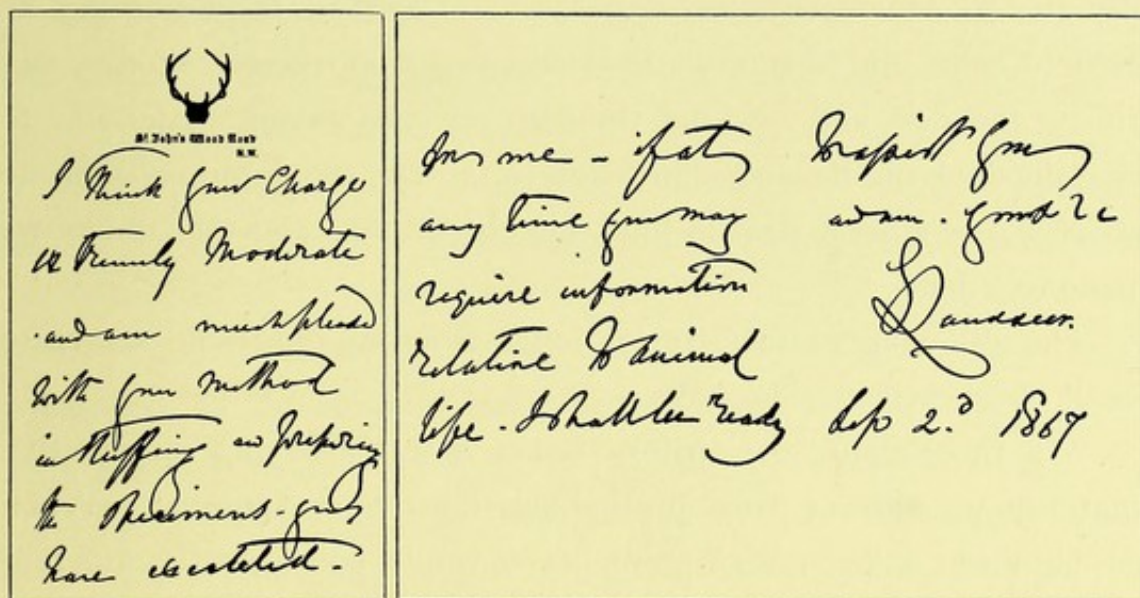 St John's Wood Road
N.W.
I think your charge
extremely moderate
and am much pleased
with your method
in stuffing and preparing
the specimens - you
have executed -
for me - if at
any time you may
require information
relative to animal
life - I shall be ready
to assist you
and am . yours &c
E Landseer.
Sep 2.d 1867